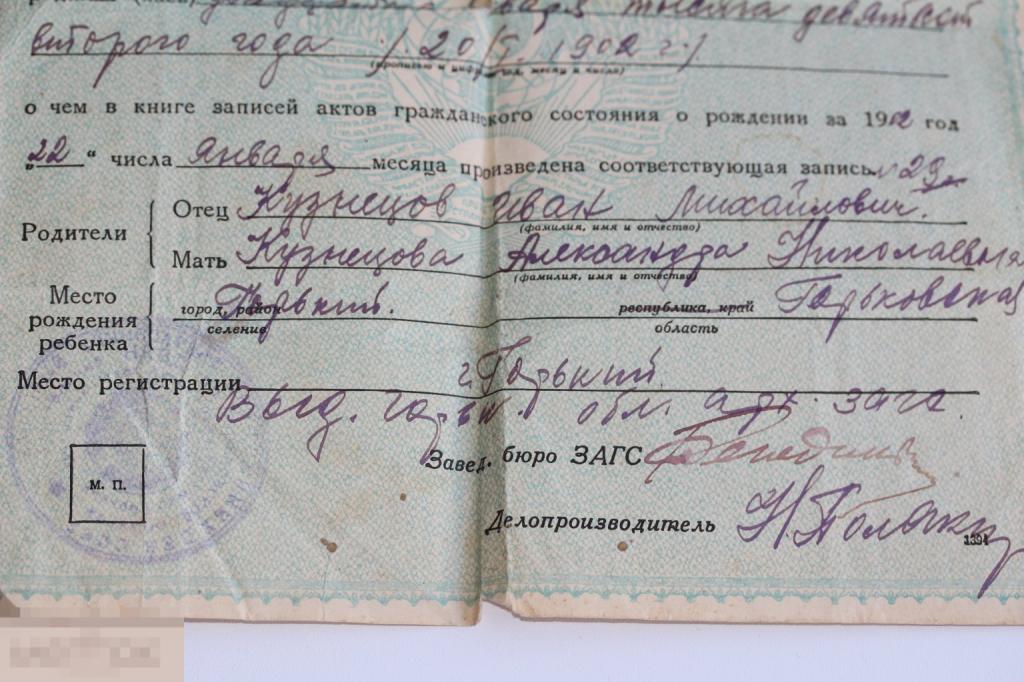 января тысяча девятьсот
второго года /20/I 1902 г./
(прописью и цифрами год, месяц и число)
о чем в книге записей актов гражданского состояния о рождении за 1902 год
„22“ числа января месяца произведена соответствующая запись № 29
Родители
Отец Кузнецов Иван Михайлович.
(фамилия, имя и отчество)
Мать Кузнецова Александра Николаевна
(фамилия, имя и отчество)
Место рождения ребенка
город, район Горький. республика, край Горьковская
селение область
Место регистрации г. Горький
Выд. горьк. обл. арх. загс.
Завед. бюро ЗАГС
м. п.
Делопроизводитель Н.
1394